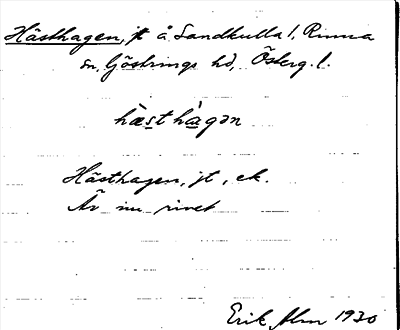 Hästhagen, jt å Sandkulla l, Rinna
sn, Göstrings hd, Österg. l.
hæsthàgən
Hästhagen, jt, ek.
Är nu rivet
Erik Alm 1930